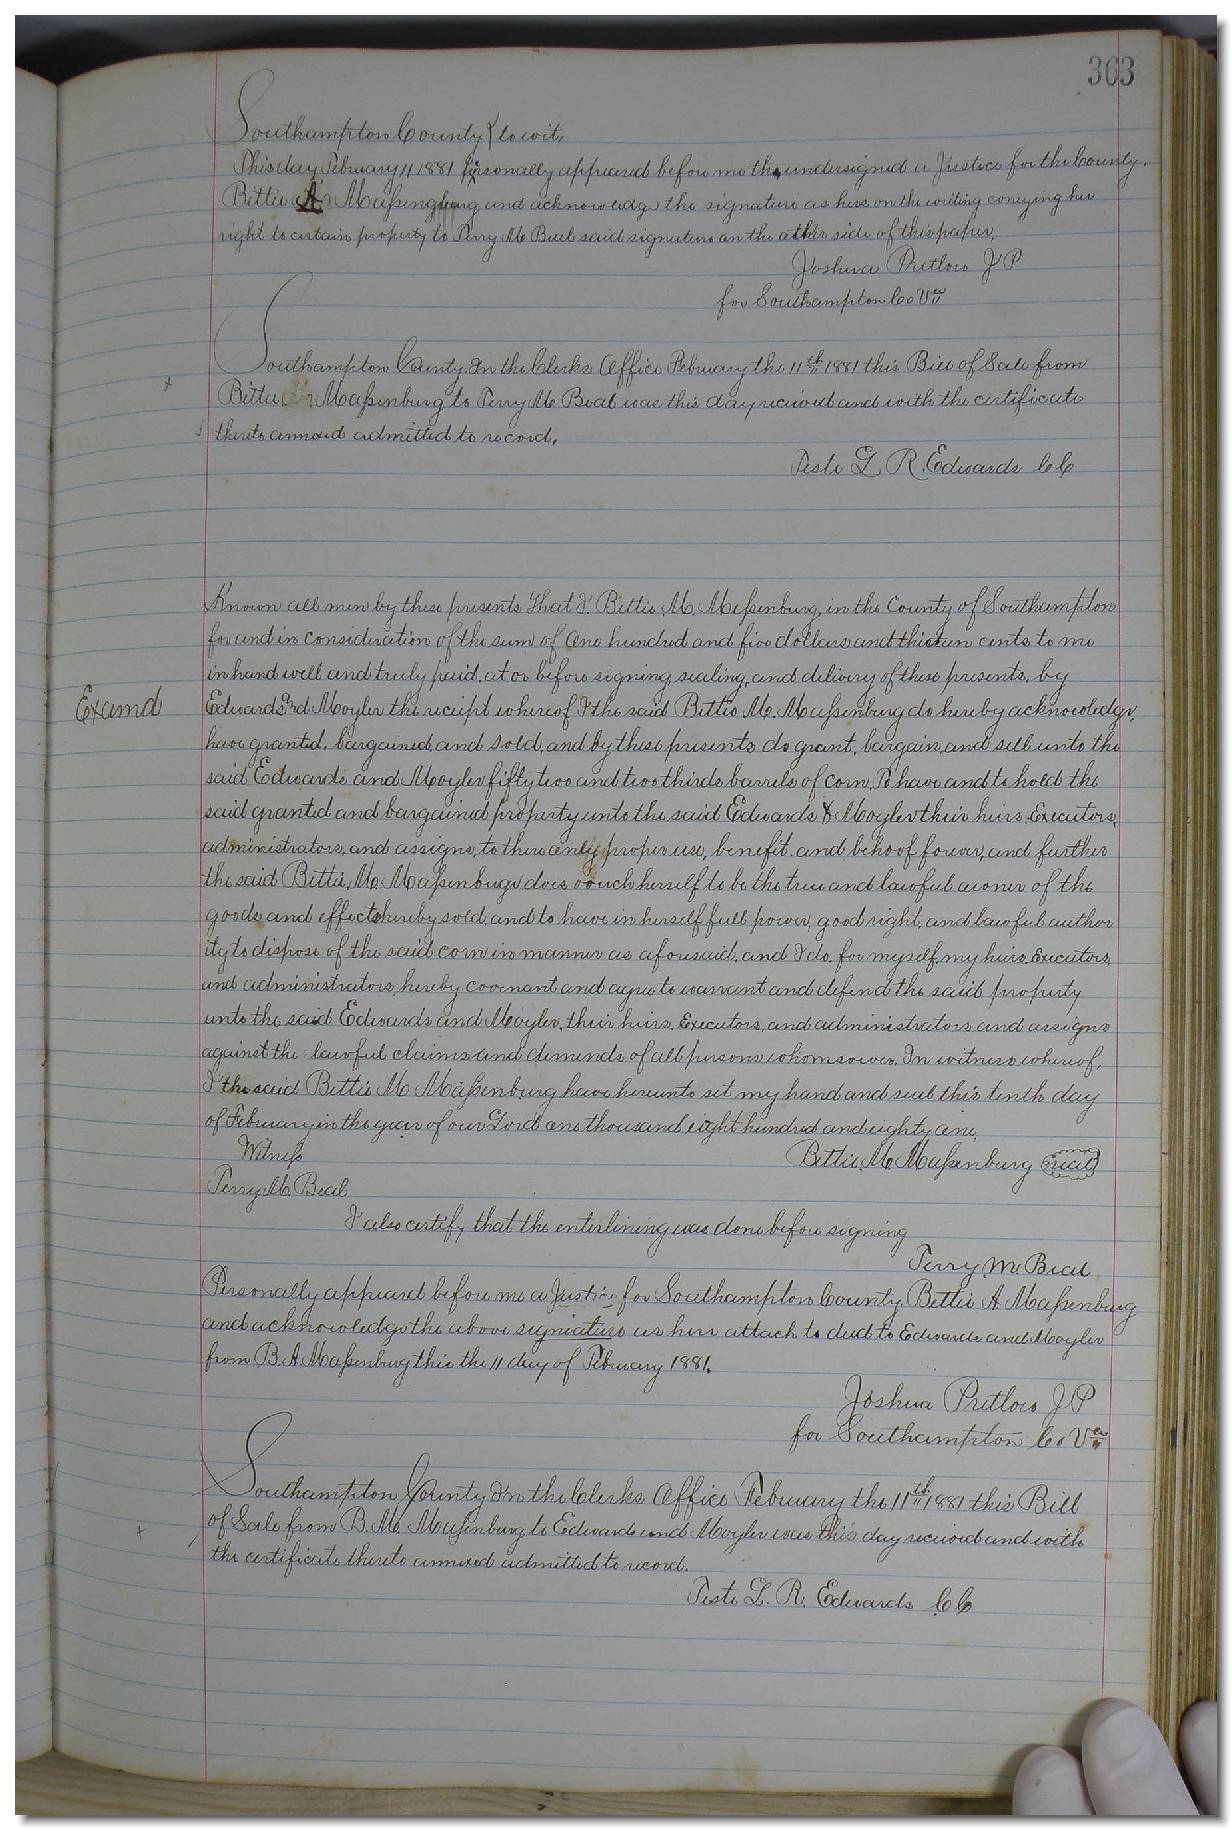 363
Southampton County } to wit,
This day February 11 1881 personally appeared before me the undersigned a Justice for the County.
Bettie A. Maßenburg and acknowledg the signature as hers on the writing conveying her
right to certain property to Perry M. Beal said signature on the other side of this paper.
Joshua Pretlow J P
for Southampton Co Va
Southampton County. In the Clerks Office February the 11th 1881 this Bill of Sale from
Bettie Maßenburg to Perry M. Beal was this day received and with the certificate
thereto annexed admitted to record.
Teste L. R. Edwards C C
Known all men by these presents That I. Bettie M. Maßenburg, in the County of Southampton
for and in consideration of the sum of One hundred and five dollars and thirteen cents to me
in hand well and truly paid, at or before signing sealing, and delivery of these presents, by
Examd
Edwards and Moyler the receipt whereof I the said Bettie M. Maßenburg do hereby acknowledge,
have granted, bargained, and sold, and by these presents do grant, bargain, and sell unto the
said Edwards and Moyler fifty two and two thirds barrels of corn, To have and to hold the
said granted and bargained property unto the said Edwards & Moyler their heirs, Executors,
administrators, and assigns, to there only proper use, benefit and behoof forever, and further
the said Bettie, M. Maßenburge does vouch herself to be the true and lawful owner of the
goods, and effects hereby sold, and to have in herself full power, good right, and lawful author
ity to dispose of the said corn in manner as aforesaid, and I do, for myself, my heirs, Executors,
and administrators, hereby covenant and agree to warrant and defend the said property
unto the said Edwards and Moyler, their heirs, Executors, and administrators and assigns
against the lawful claims and demands of all persons whomsoever. In witness whereof,
I the said Bettie M Maßenburg have hereunto set my hand and seal this tenth day
of February in the year of our Lord one thousand eight hundred and eighty one,
Witneß Bettie, M. Maßenburg (seal)
Perry M. Beal
I also certify that the enterlining was done before signing
Perry, M. Beal
Personally appeard before me a Justice for Southampton County, Bettie A. Maßenburg
and acknowledge the above signiature as hers attach to deed to Edwards and Moyler
from B. A. Maßenburg this the 11 day of February 1881.
Joshua Pretlow J P
for Southampton Co Va
Southampton County In the Clerks Office February the 11th 1881 this Bill
of Sale from B. M. Maßenburg to Edwards and Moyler was this day received and with
the certificate thereto annexed admitted to record.
Teste L. R. Edwards C C